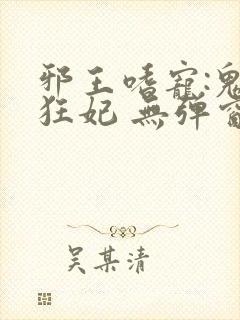 邪王嗜寵:鬼
狂妃 無彈窗
吴某清